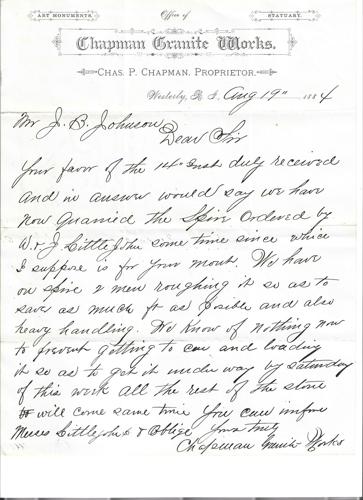 Office of
ART MONUMENTS. STATUARY.
Chapman Granite Works.
CHAS. P. CHAPMAN, PROPRIETOR.
Westerly, R. I. Aug 19" 1884
Mr J. B. Johnson
Dear Sir
Your favor of the 14th Inst duly received
and in answer would say we have
now quarried the Spire Ordered by
W. & J Little John some time since which
I suppose is for your mont. We have
on spire 2 men roughing it so as to
save as much ft as posible and also
heavy handling. We know of nothing now
to prevent getting to car and loading
it so as to get it under way by saturday
of this week All the rest of the stone
will come same time You can infom
Messes Littlejohn & Oblige Yours truly
Chapman Granite Works